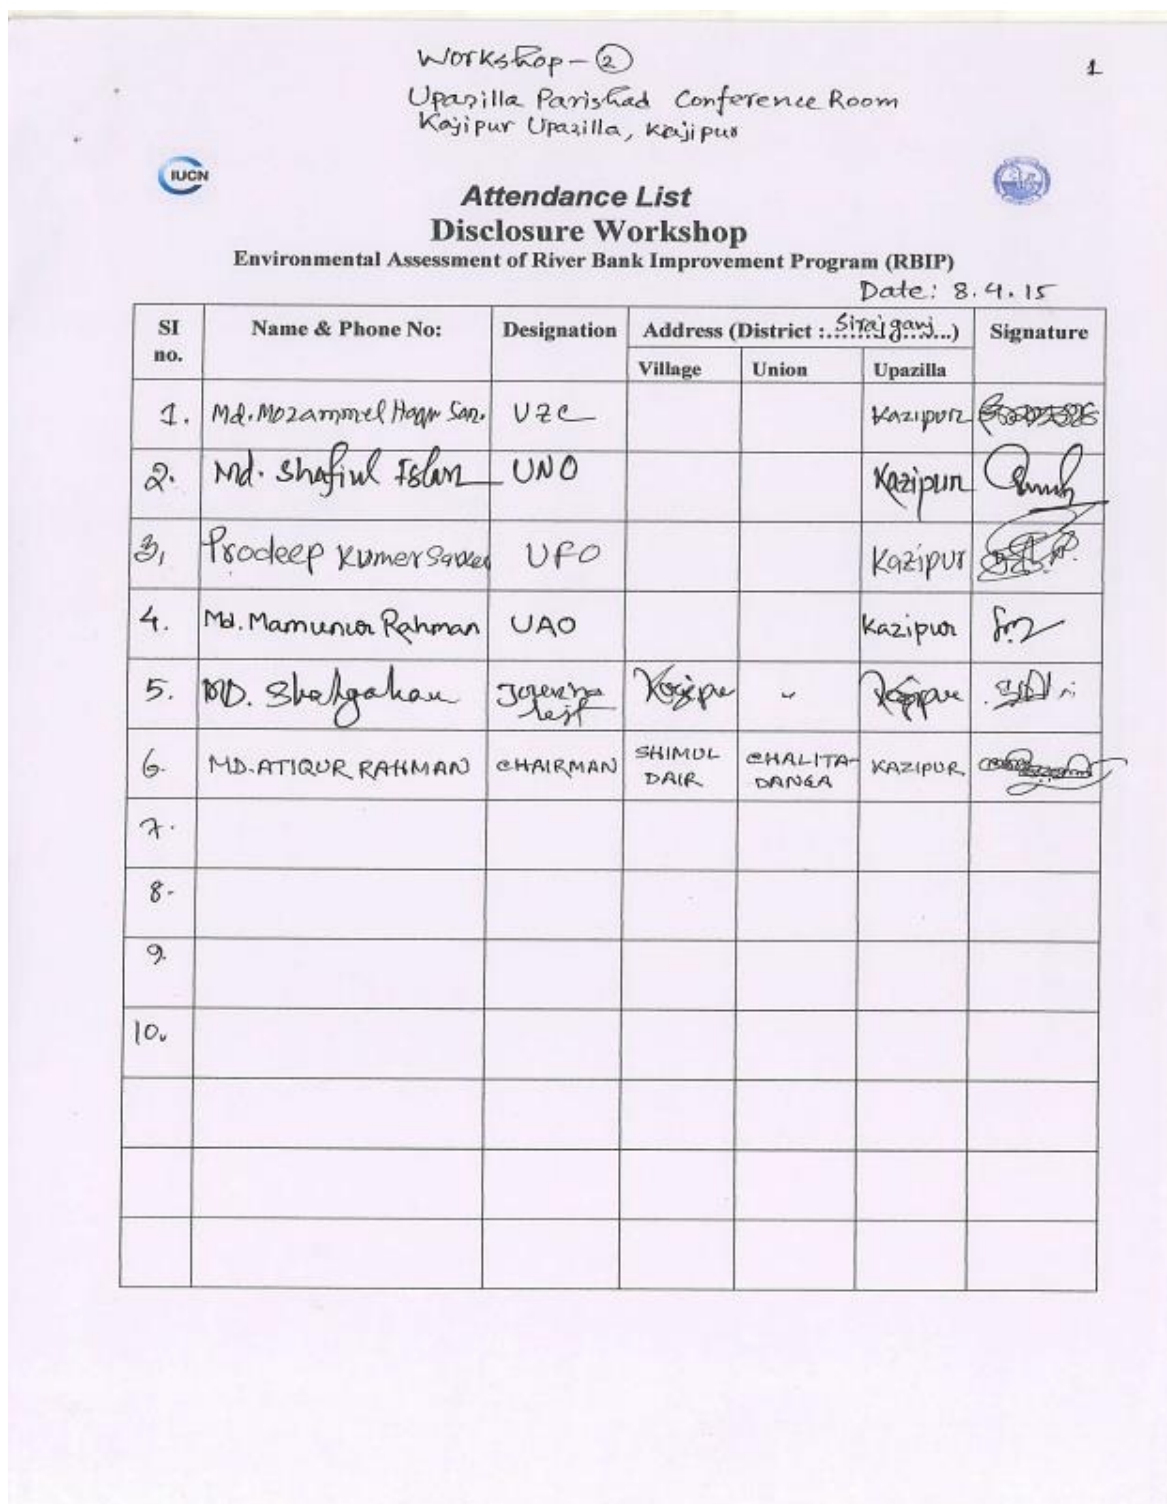 Workshop - 2
1
Upazilla Parishad Conference Room
Kajipur Upazilla, Kajipur
IUCN
Attendance List
Disclosure Workshop
Environmental Assessment of River Bank Improvement Program (RBIP)
Date: 8.4.15
SI no. Name & Phone No: Designation Address (District :..Sirajganj...) Signature
Village Union Upazilla
1. Md. Mozammel UZC Kazipur
2. Md. Shafiul Islam UNO Kazipur
3, Prodeep Kumer Sarker UFO Kazipur
4. Md. Mamunur Rahman UAO Kazipur
5. MD.
6. MD. ATIQUR RAHMAN CHAIRMAN SHIMUL DAIR CHALITA-DANGA KAZIPUR
7.
8.
9.
10.